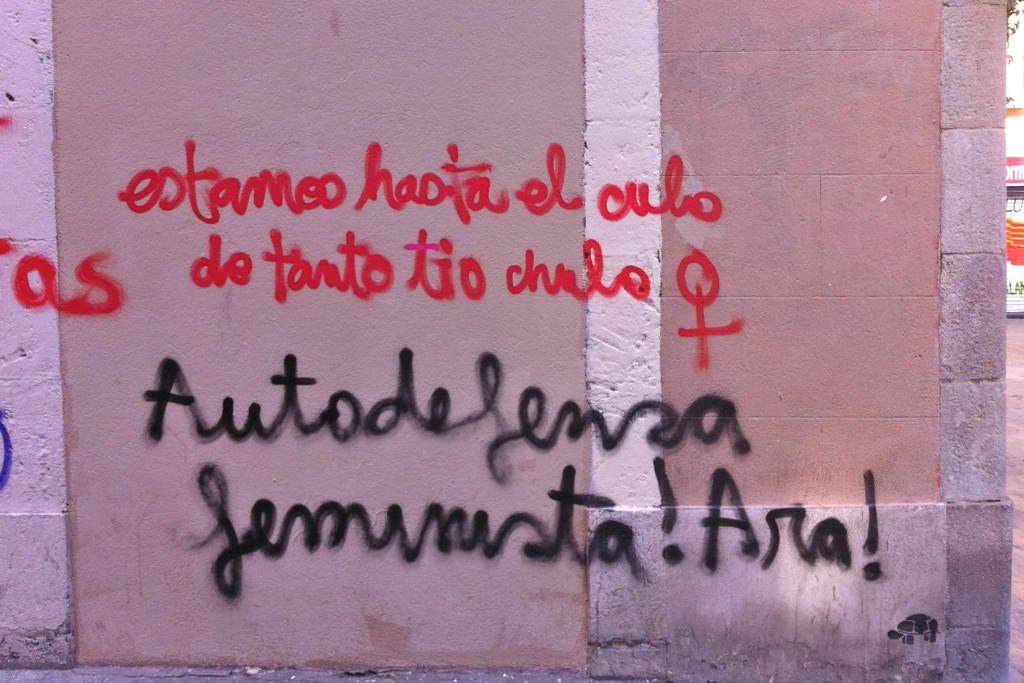 estamos hasta el culo
de tanto tio chulo ♀
as
Autodefensa
feminista! Ara!